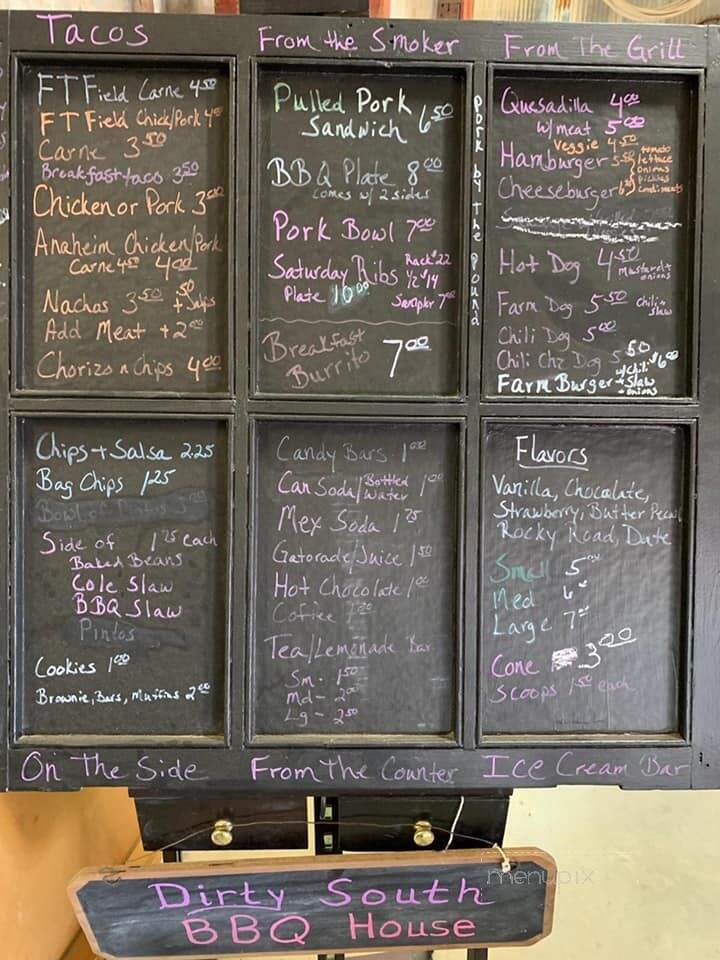 Tacos
FT Field Carne 4.50
FT Field Chick/Pork 4.00
Carne 3.50
Breakfast taco 3.50
Chicken or Pork 3.00
Anaheim Chicken/Pork
Carne 4.50 4.00
Nachos 3.50 .50 + Jalps
Add Meat +2.00
Chorizo n Chips 4.00
From the Smoker
Pulled Pork
Sandwich 6.50
BBQ Plate 8.00
comes w/ 2 sides
Pork Bowl 7.00
Saturday Ribs Rack $22
1/2 $14
Plate 10.00 Sampler 7.00
Breakfast
Burrito 7.00
Pork by the Pound
From The Grill
Quesadilla 4.00
w/meat 5.00
Veggie 4.50
Hamburger 5.50
Cheeseburger
tomato
lettuce
onions
pickles
condiments
Hot Dog 4.50
mustard +
onions
Farm Dog 5.50 chili +
slaw
Chili Dog 5.00
Chili Chz Dog 5.50
w/chili $6.00
Farm Burger + slaw
+ onions
Chips + Salsa 2.25
Bag Chips 1.25
Bowl of Pintos
Side of 1.75 each
Baked Beans
Cole Slaw
BBQ Slaw
Pintos
Cookies 1.00
Brownie, Bars, Muffins 2.00
On The Side
Candy Bars 1.00
Can Soda/Bottled Water 1.00
Mex Soda 1.75
Gatorade/Juice 1.50
Hot Chocolate 1.00
Coffee 1.00
Tea/Lemonade Bar
Sm - 1.50
md - 2.00
Lg - 2.50
From The Counter
Flavors
Vanilla, Chocolate,
Strawberry, Butter Pecan
Rocky Road, Date
Small 5.00
Med 6.00
Large 7.00
Cone 3.00
Scoops 1.50 each
Ice Cream Bar
Dirty South
BBQ House
menupix